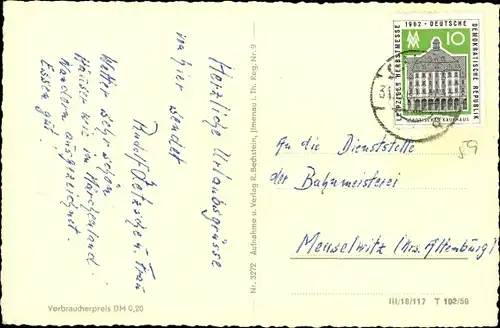 Herzliche Urlaubsgrüsse
von hier sendet
Rudolf u. Frau
Wetter sehr schön
Häuser wie im Märchenland.
Wandern ausgezeichnet.
Essen gut!
Verbraucherpreis DM 0,20
Nr. 3272 Aufnahme u. Verlag R. Bechstein, Ilmenau i. Th. Reg. Nr. 9
LEIPZIGER HERBSTMESSE
1962 · DEUTSCHE
DEMOKRATISCHE REPUBLIK
MM 10
An die Dienststelle
der Bahnmeisterei
Meuselwitz (Krs. Altenburg)
59
III/18/117 T 102/59